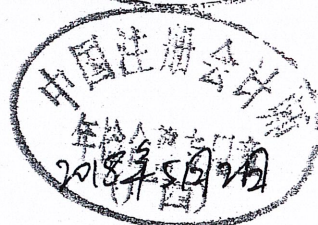 中国注册会计师
年检合格专用章
2018年5月2日